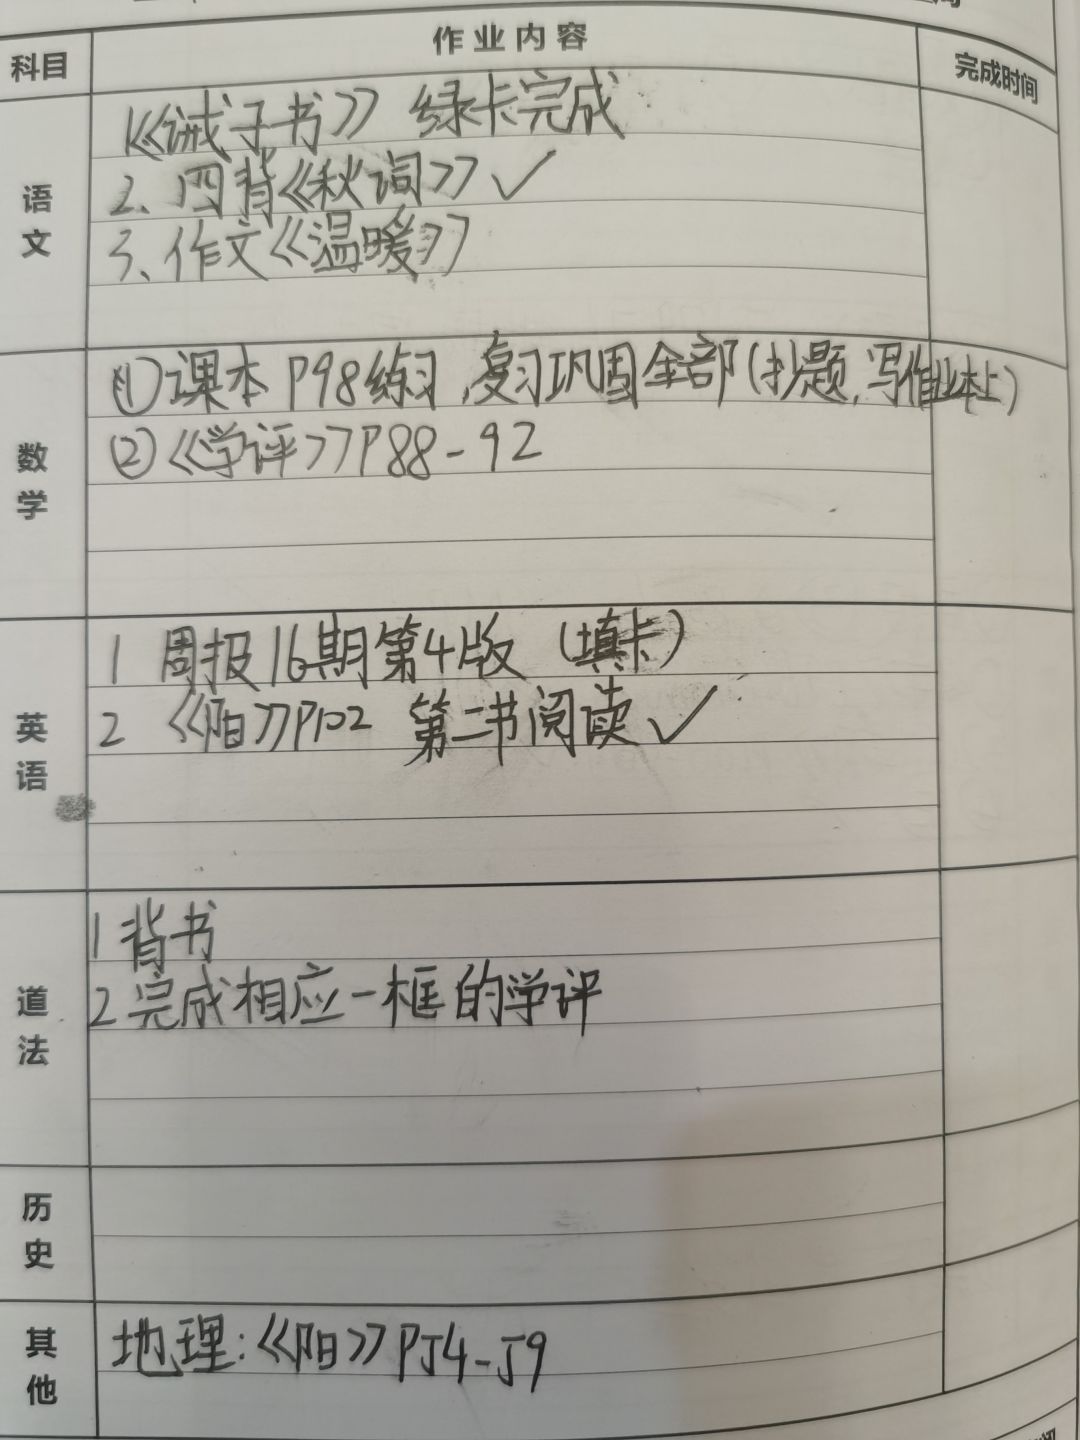 科目 作业内容 完成时间
语文
1《诫子书》 绿卡完成
2、四背《秋词》✓
3、作文《温暖》
数学
①课本P98练习,复习巩固全部(抄题,写作业本上)
②《学评》P88-92
英语
1 周报16期第4版 (填卡)
2 《阳》P102 第二节阅读✓
道法
1 背书
2 完成相应一框的学评
历史
其他
地理:《阳》P54-59